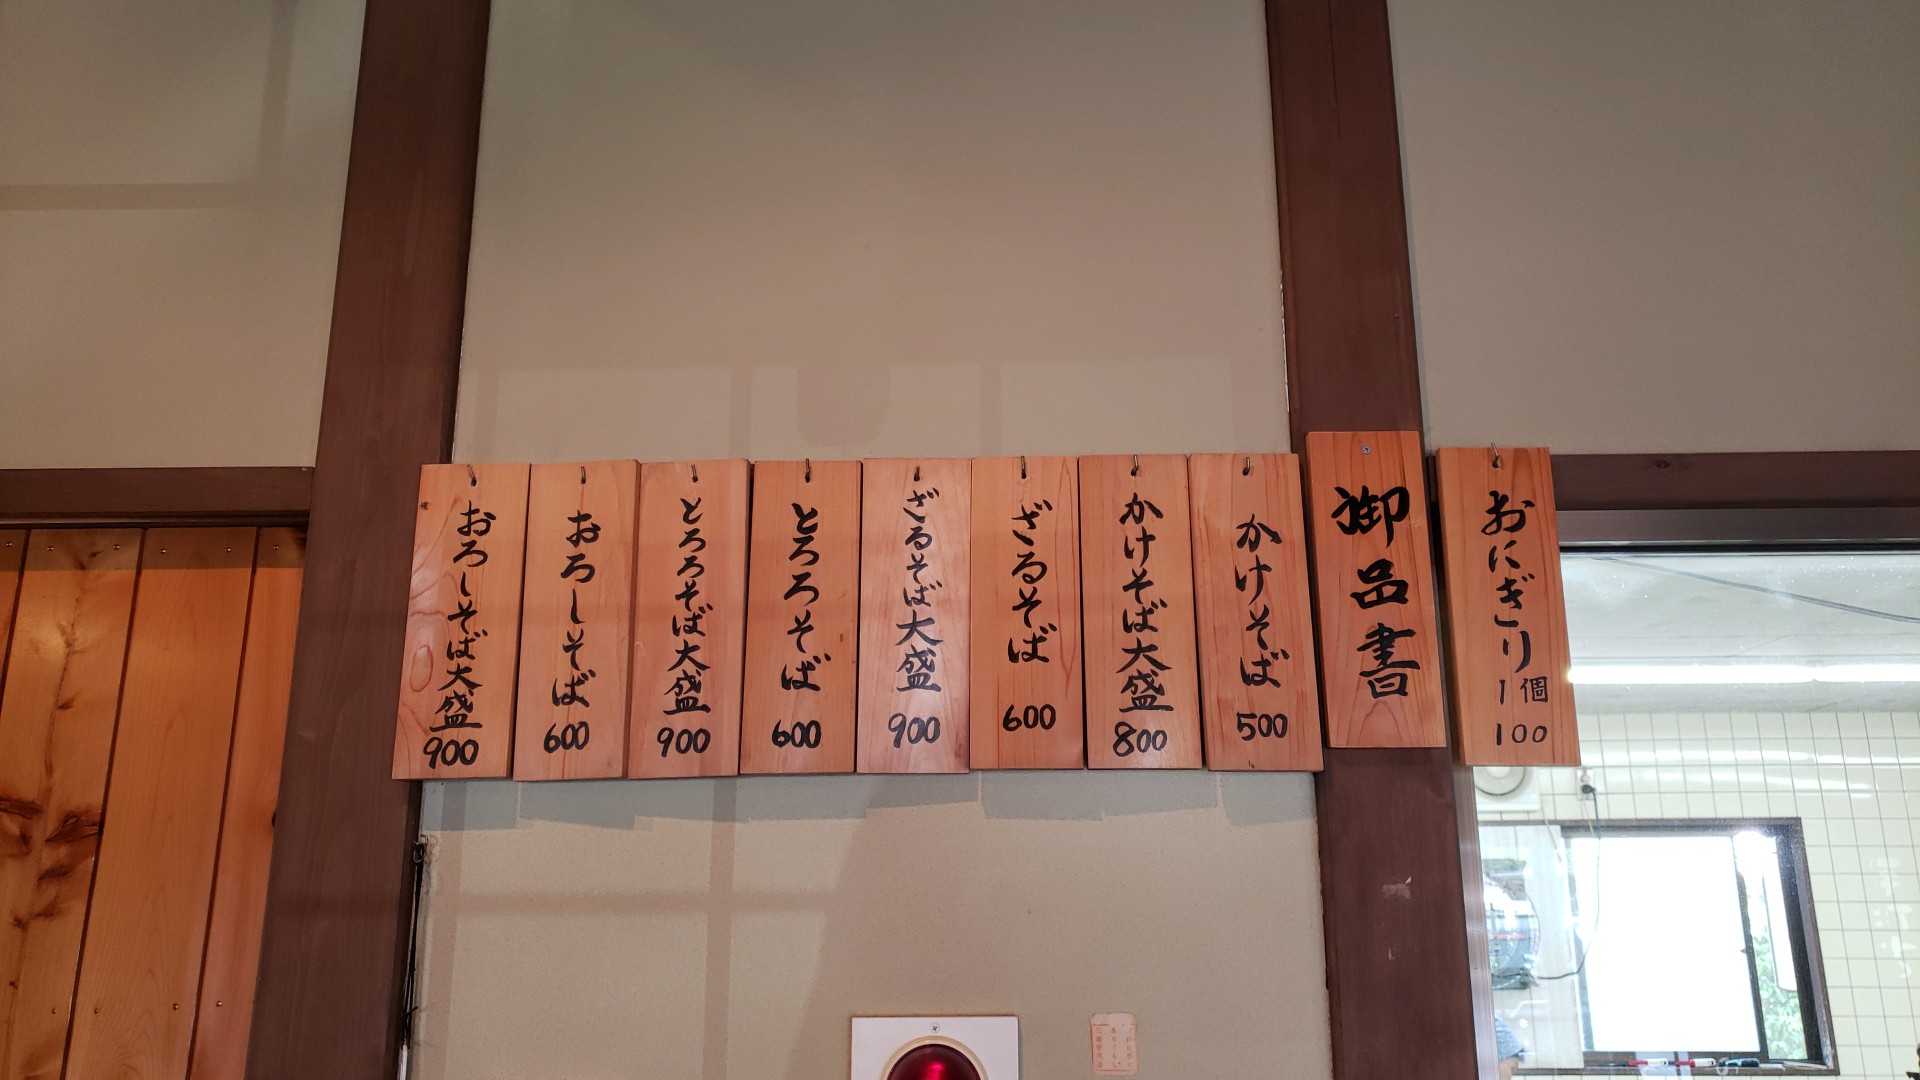 おにぎり
1個
100
御品書
かけそば
500
かけそば大盛
800
ざるそば
600
ざるそば大盛
900
とろろそば
600
とろろそば大盛
900
おろしそば
600
おろしそば大盛
900